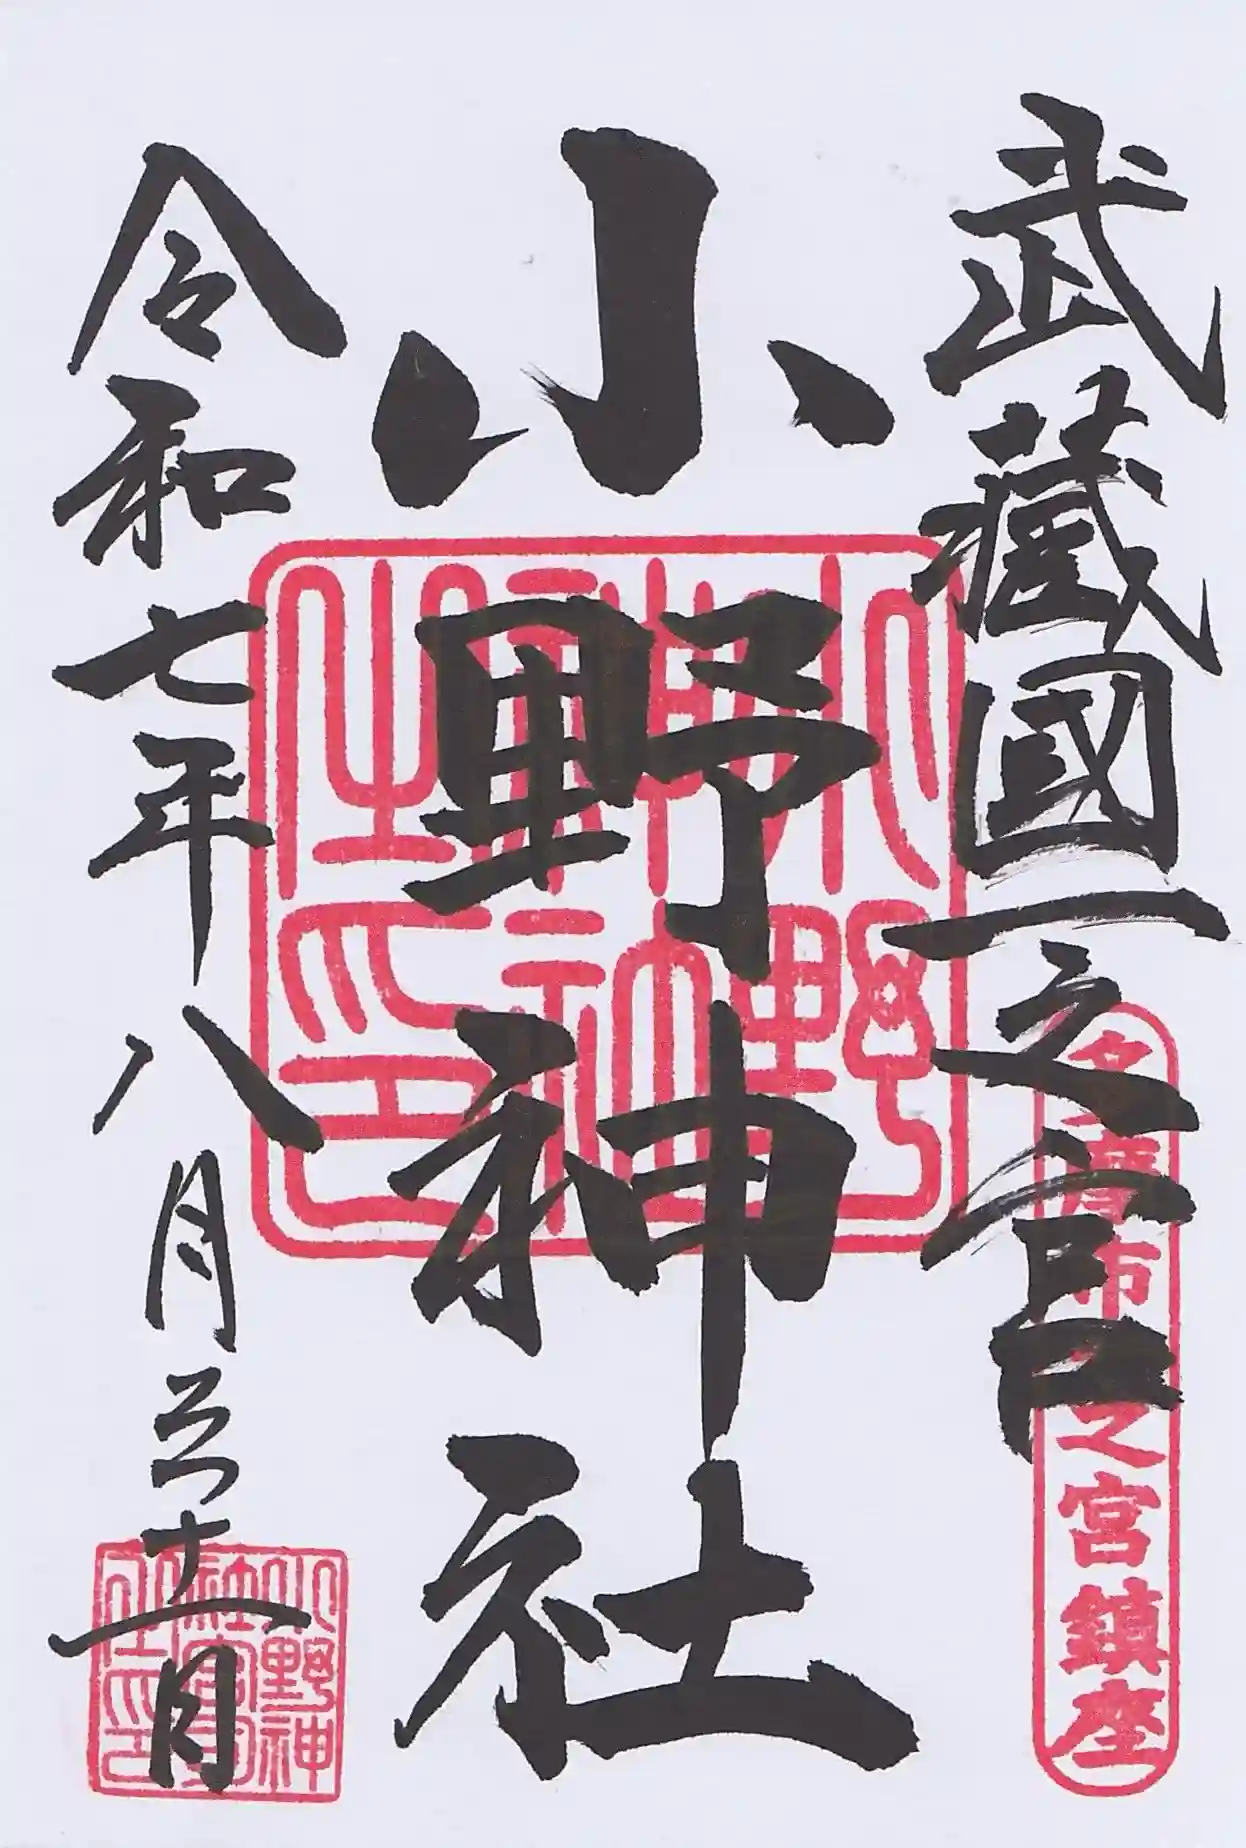 武藏國一之宮
多摩市一之宮鎮座
小野神社
小野神社之印
令和七年八月三十一日
小野神社宮司之印